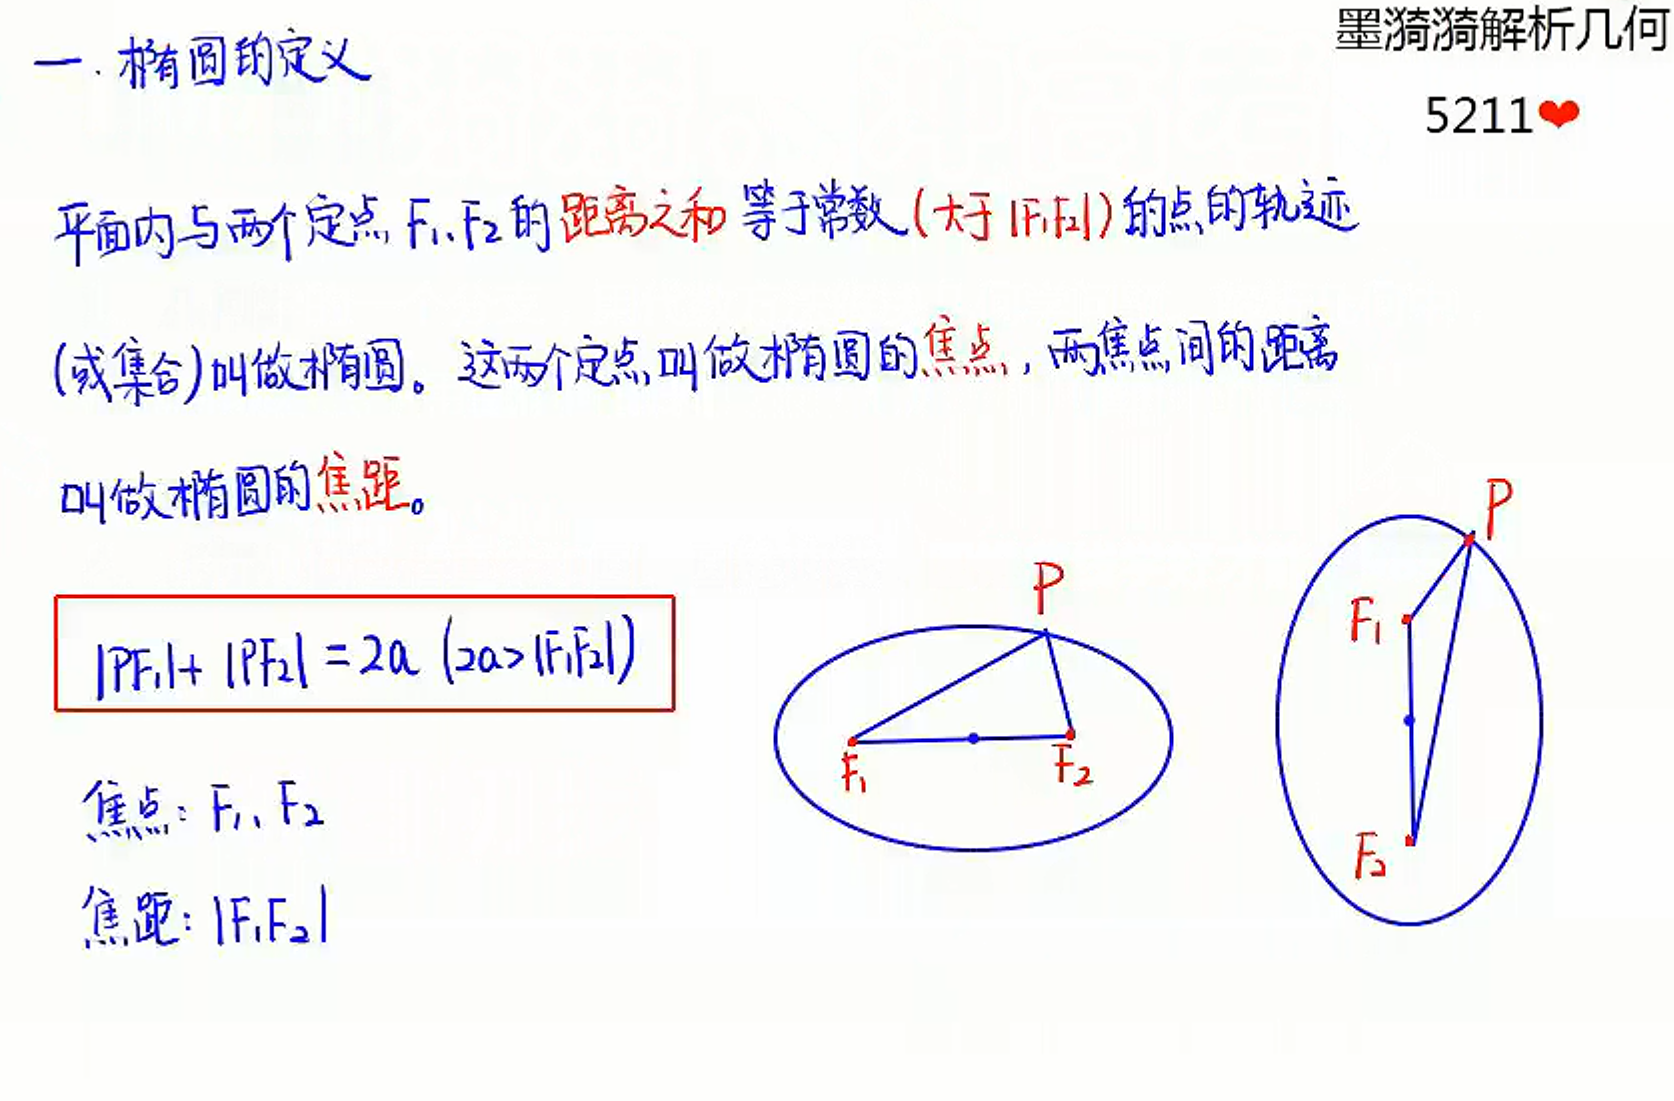 墨漪漪解析几何
5211❤
一.椭圆的定义
平面内与两个定点F₁、F₂的距离之和等于常数(大于|F₁F₂|)的点的轨迹
(或集合)叫做椭圆。这两个定点叫做椭圆的焦点,两焦点间的距离
叫做椭圆的焦距。
|PF₁|+|PF₂|=2a (2a>|F₁F₂|)
焦点:F₁、F₂
焦距:|F₁F₂|
P
F₁
F₂
P
F₁
F₂